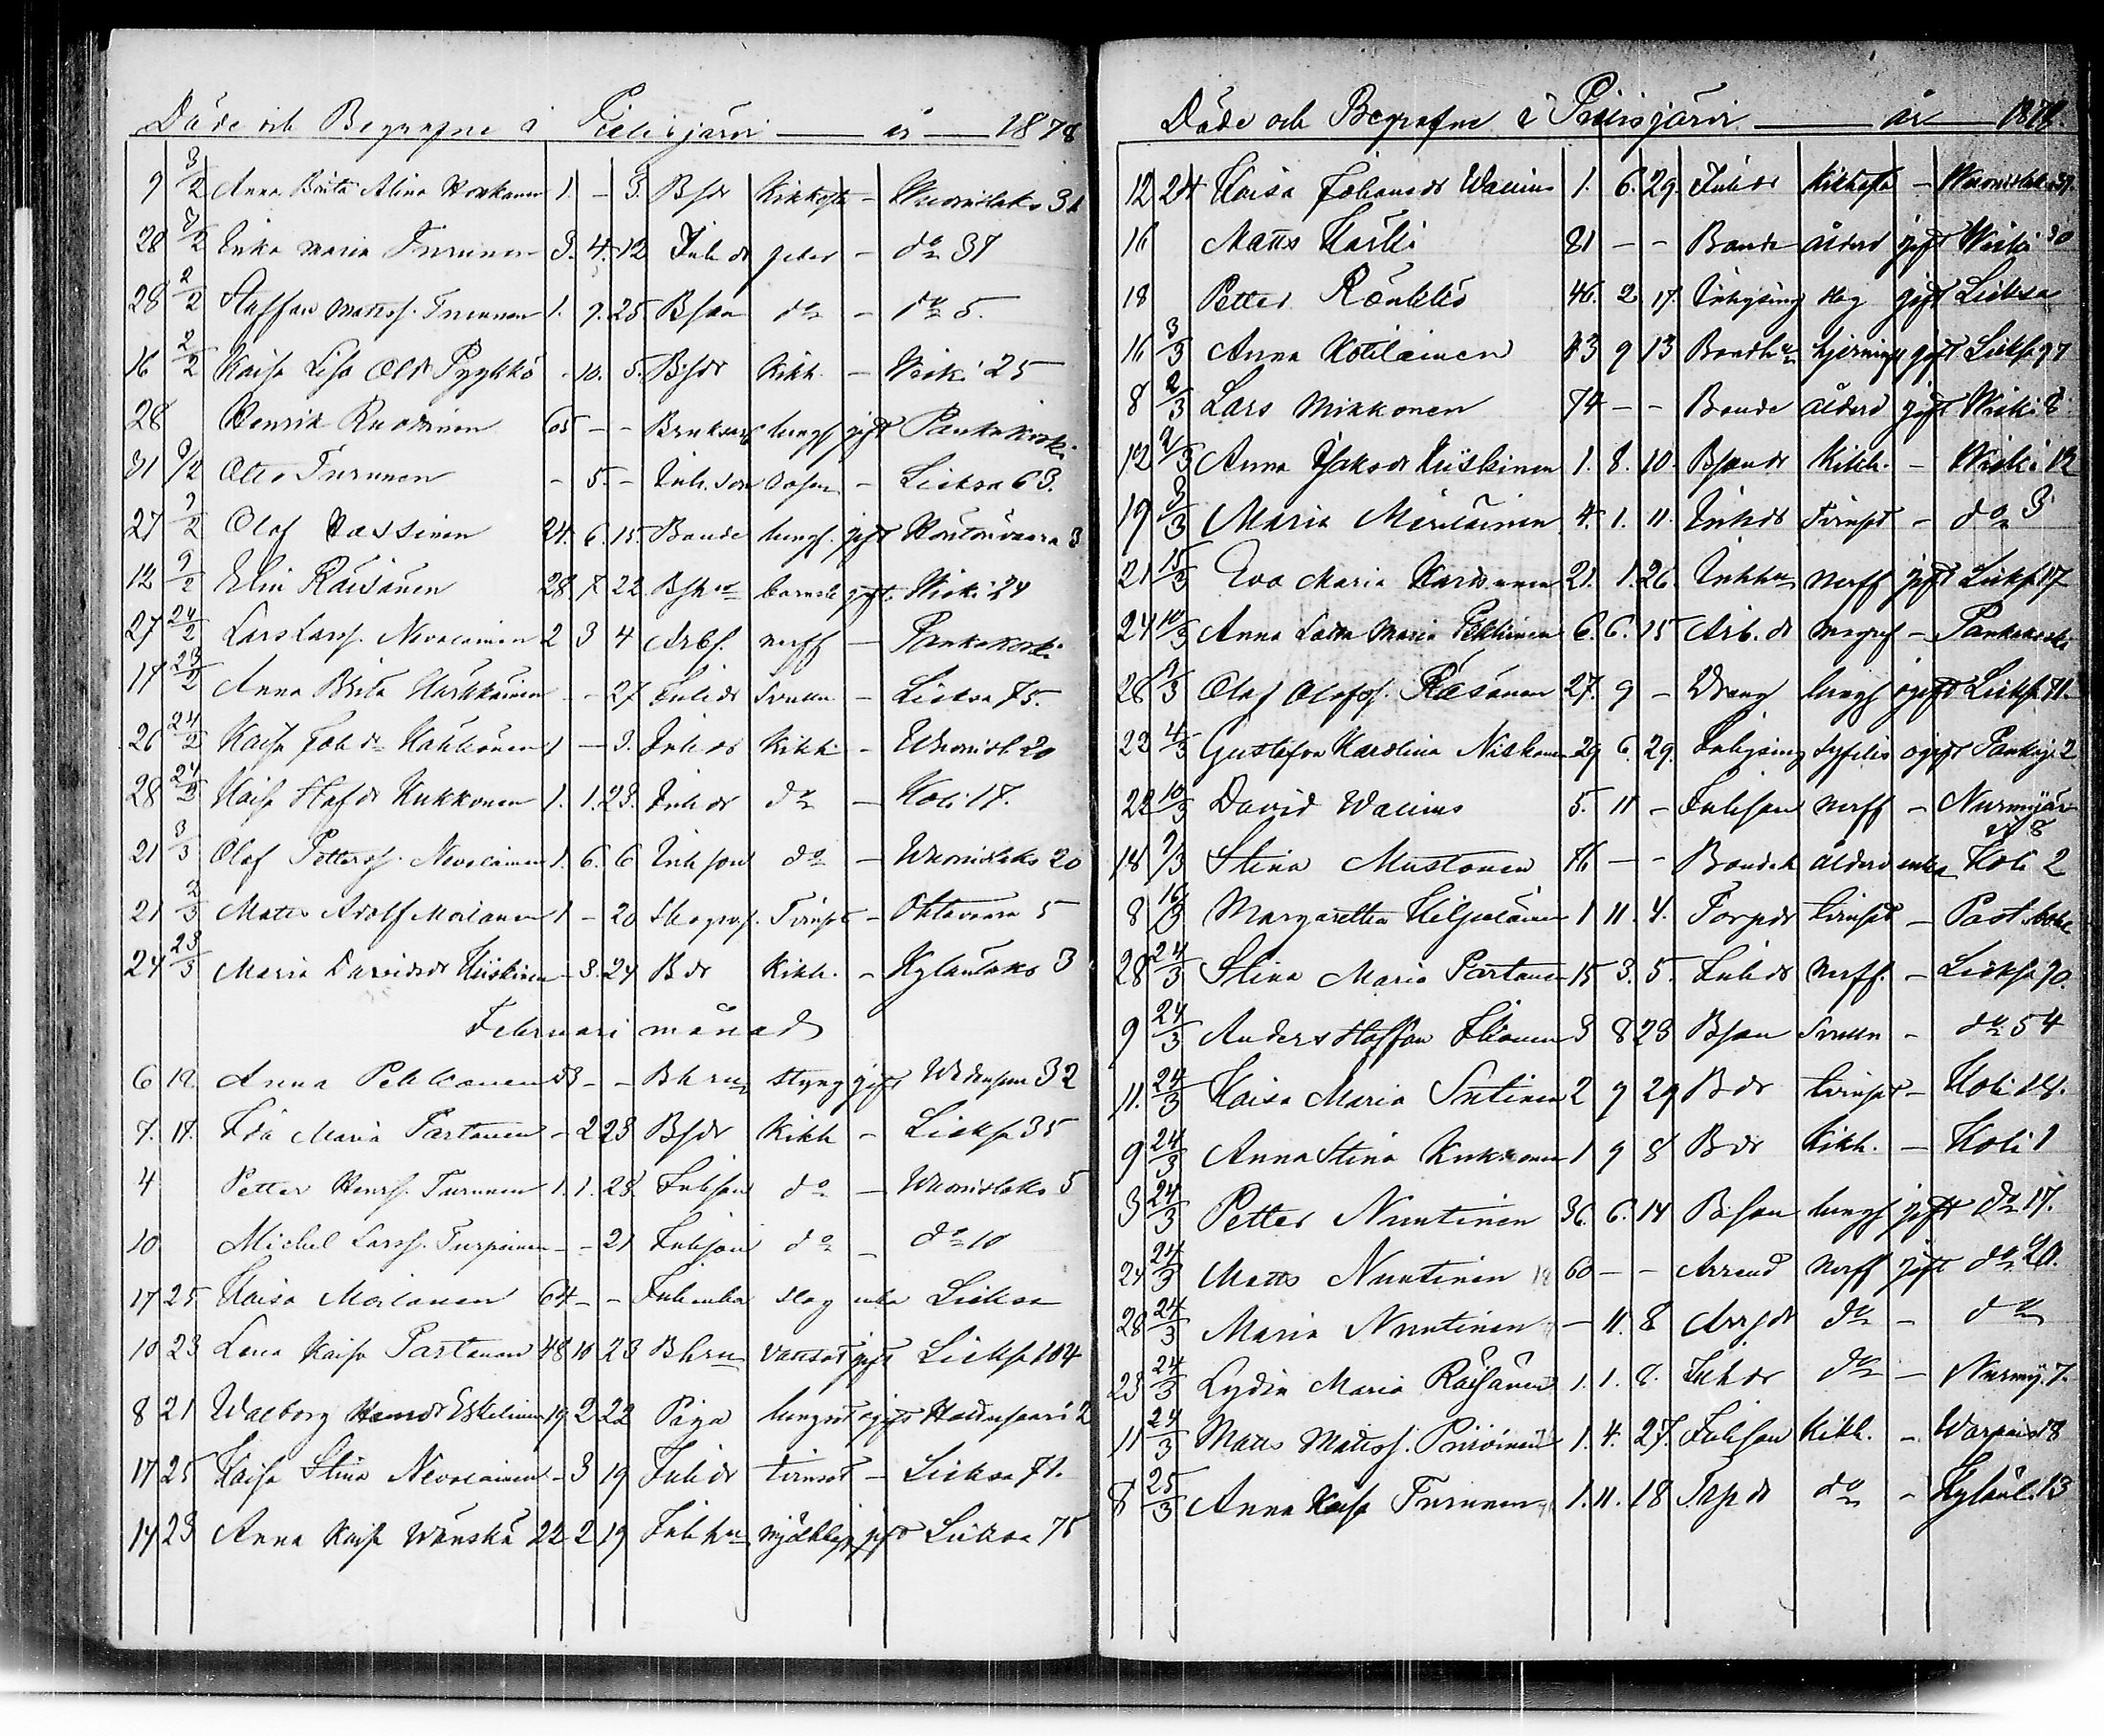 Döde och Begrafne i Pielisjärvi år 1878
9 3/2 Anna Brita Alina Honkanen 1. – 3. Bsdr Kikhosta – Wuonislaks 31
28 3/2 Inka Maria Turunen 3. 4. 12 Inh dr feber – do 37
28 2/2 Staffan Mattss. Turunen 1. 9. 25. Bson do – do 5.
16 2/2 Kaisa Lisa Ols dr Pyykkö – 10. 5. Bsdr Kikh. – Wieki 25
28 Henrik Ruotsinen 65 – – lungs gift Pankakoski
31 9/2 Otto Turunen – 5. – Inh. son – Lieksa 63.
27 9/2 Olof Kassinen 24. 6. 15. Bonde lungs. gift 3
12 9/2 Elin Räisänen 28. 7. 22 Bshu barnsb gift. Wieki 24
27 24/2 Lars Larss. Nevalainen 2 3 4 Arbs. nerff – Pankakoski
17 23/2 Anna Brita Härkkäinen – – 27 Inh dr – Lieksa 75.
26 24/2 Kaisa Joh dr 1 – 3. Inh dr Kikh – Wuonisl 20
28 24/2 Kaisa Staf dr Kukkonen 1. 1. 23. Inh dr do – Koli 17.
21 3/3 Olof Petterss. Nevalainen 1. 6. 6 Inhson do – Wuonislaks 20
21 2/3 Matts Adolf Moilanen 1 – 20 – 5
24 23/3 Maria Davidsdr Kiiskinen – 3. 24 B dr Kikh. – Kylänlaks 3
Februari månad
6 12. Anna Pehkonen 53 – – Bhru styng gift 32
7. 17. Ida Maria Partanen – 2 23 Bsdr Kikh – Lieksa 35
4 Petter Henrs. Turunen 1. 1. 28. Inhson do – Wuonislaks 5
10 Michel Larss. Turpeinen – – 21 Inhson do – do 10
17 25 Kaisa Moilanen 64 – – Inhenka slag enka Lieksa
10 23 Lena Kaisa Partanen 48 10 23 Bhru vattsot gift Lieksa 104
8 21 Walborg Henrdr Eskelinen 19 2 22 Piga lungsot ogift 2
17 25 Kaisa Stina Nevalainen – 3 19 Inh dr tvinsot – Lieksa 71.
14 23 Anna Kaisa Wänskä 22 2 19 Inh hu gift Lieksa 75
Döde och Begrafne i Pielisjärvi år 1878.
12 24 Kaisa Johansdr Wallius 1. 6. 29. Inh dr Kikhosta – Wuonislaks
16 Matts Kärki 81 – – Bonde ålderd gift Wieki 30
18 Petter Rönkkö 46. 2. 17. Inhysing slag gift Lieksa
16 3/3 Anna Kotilainen 43 9 13 Bondhu gift Lieksa 97
8 2/3 Lars Mikkonen 74 – – Bonde ålderd gift Wieki 8
12 2/3 Anna Isaks dr Kiiskinen 1. 8. 10. Bson dr Kikh. – Wieki 12
19 3/3 Maria Meriläinen 4. 1. 11. Inh dr Tvinsot – do 3
21 15/3 Eva Maria 21. 1. 26. Inh hu nerff gift Lieksa 17
24 10/3 Anna Lovisa Maria Pikkarinen 6. 6. 15 Arb. dr – Pankakoski
28 9/3 Olof Olofss. Räsänen 27. 9 – Dräng lungs ogift Lieksa 71.
22 4/3 Gustafva Karolina 29 6. 29. Inhysing syfilis ogift 2
22 10/3 David Wallius 5. 11 – Inhson nerff – Nurmijärvi
N 8
18 9/3 Stina Mustonen 76 – – ålderd enka Koli 2
8 16/3 Margaretha Kilpeläinen 1 11. 4. Torpdr tvinsot –
28 24/3 Stina Maria Partanen 15 3. 5. Inh dr nerff. – Lieksa 70.
9 24/3 Anders Staffan 3 8 23 Bson – do 54
11. 24/3 Kaisa Maria Sutinen 2 9 29 B dr tvinsot – Koli 18.
9 24/3 Anna Stina Kukkonen 1 9 8 B dr Kikh. – Koli 1
3 24/3 Petter Nuutinen 36. 6. 14 Bson lungs gift do 17.
24 24/3 Matts Nuutinen 60 – – Arrend nerff gift do 20.
28 24/3 Maria Nuutinen – 11. 8 do – do
23 24/3 Lydia Maria Räisänen 1. 1. 8. Inh dr do – Nurmij. 7.
11 24/3 Matts Mattss. Piiroinen 1. 4. 27. Inhson Kikh. – 8
8 25/3 Anna Kaisa Turunen 1. 11. 18 Torp dr do – Kylänl. 13